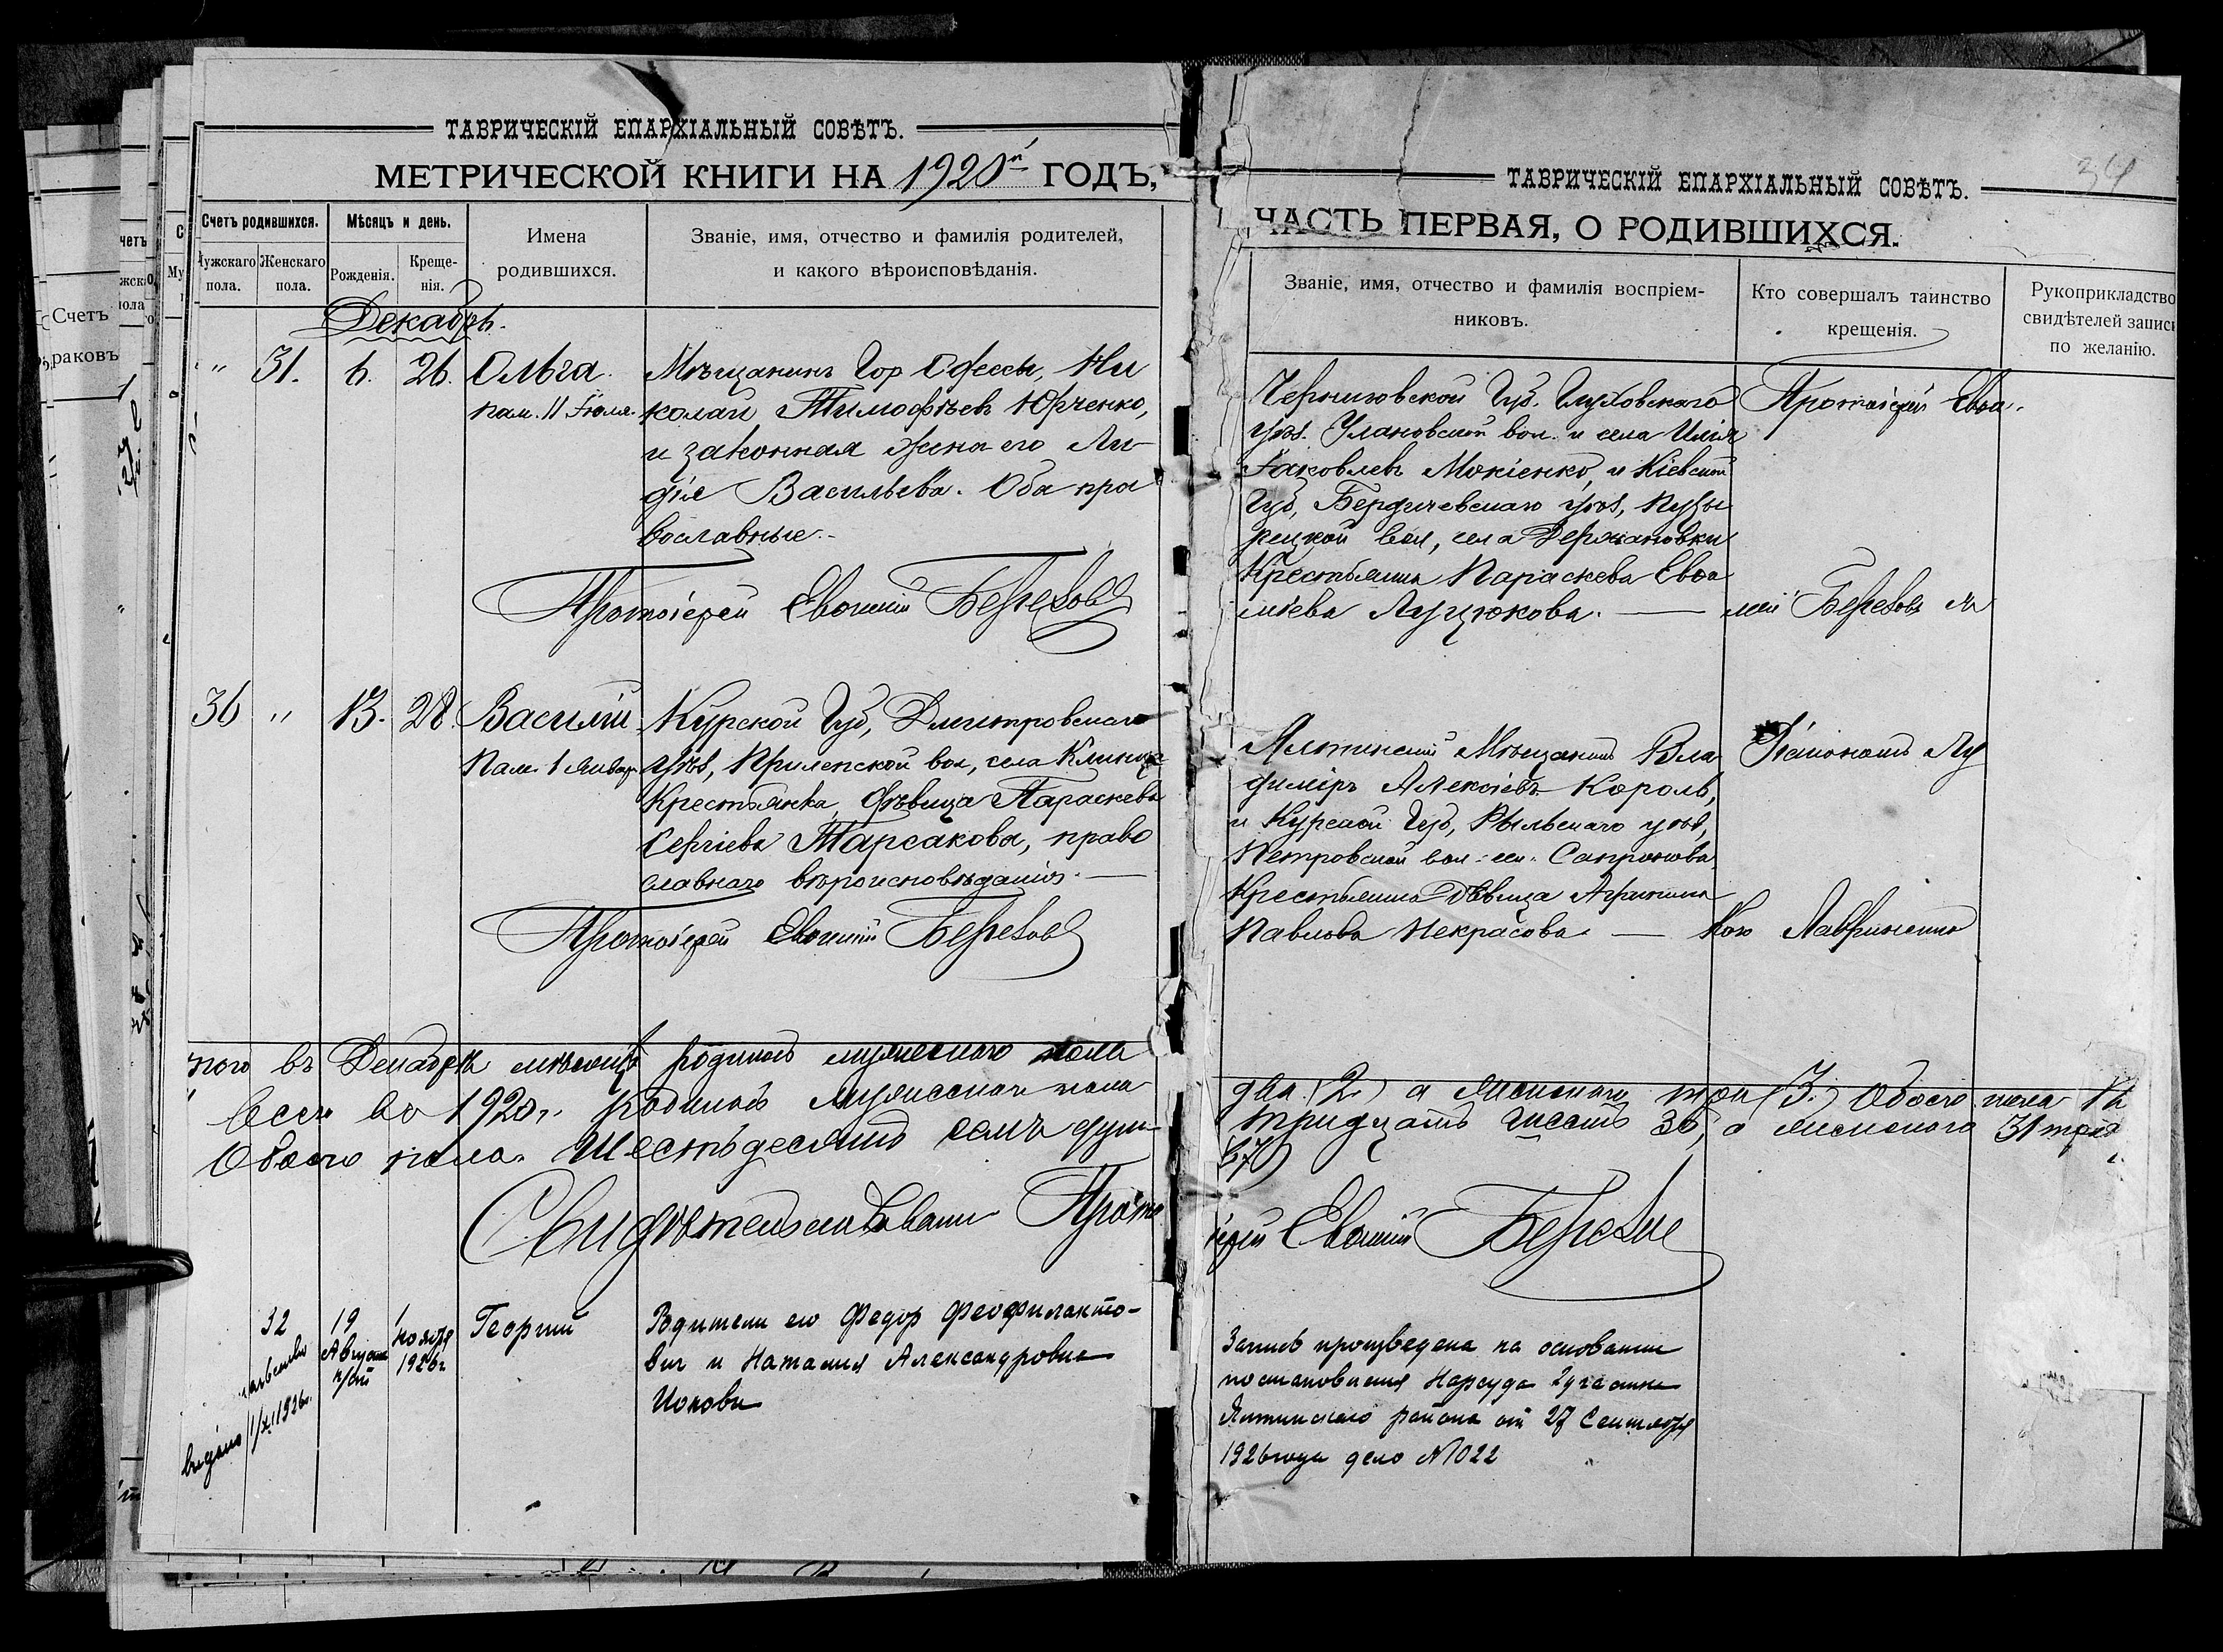 ТАВРИЧЕСКІЙ ЕПАРХІАЛЬНЫЙ СОВѢТЪ.
МЕТРИЧЕСКОЙ КНИГИ НА 1920й ГОДЪ,
Счетъ родившихся.
Мужскаго пола.
Женскаго пола.
Мѣсяцъ и день.
Рожденія.
Креще-
нія.
Имена
родившихся.
Званіе, имя, отчество и фамилія родителей,
и какого вѣроисповѣданія.
Декабрь.
" 31. 6. 26. Ольга.
пам. 11 Іюля.
Мѣщанинъ Гор Одессы, Ни
колай Тимофѣевъ Юрченко,
и законная жена его Ли-
дія Васильева. Оба пра
вославные.
Протоіерей Евѳимій Береховъ
36 " 13. 28. Василій
Пам. 1 Январ
Курской Губ, Дмитровскаго
уѣз, Прилепской вол, села
Крестьянка, дѣвица Параскева
Сергіева Тарсакова, право
славнаго вѣроисповѣданія.
Протоіерей Евѳимій Береховъ
того въ Декабрѣ мѣсяцѣ родилось мужескаго пола
Всего въ 1920г. родилось мужескаго пола
Обоего пола. Шестьдесятъ семь душ
Протo
32 19 Августа н/ст 1 ноября 1926г. Георгий
Родители его Федор Феофилакто-
вич и Наталия Александровна
Ионовы
выдано 1/XI 1926г.
34
ТАВРИЧЕСКІЙ ЕПАРХІАЛЬНЫЙ СОВѢТЪ.
ЧАСТЬ ПЕРВАЯ, О РОДИВШИХСЯ.
Званіе, имя, отчество и фамилія воспріем-
никовъ.
Кто совершалъ таинство
крещенія.
Рукоприкладство
свидѣтелей записи
по желанію.
Черниговской Губ. Глуховскаго
уѣз. Улановской вол. и села Илія
Іаковлевъ Мокіенко, и Кіевской
Губ, Бердичевскаго уѣз,
рецкой вол, села Держановки
Крестьянка Параскева Евѳи
міева Луцюкова.
Протоіерей Евѳи-
мій Береховъ
Ялтинскій Мѣщанинъ Вла
диміръ Алексіевъ Король,
и Курской Губ, Рыльскаго уѣз,
Петровской вол. сел. Сапронова
Крестьянка Дѣвица Агрипина
Павлова Некрасова.
Діаконъ Лу
кою Лавриненко
два (2) а женскаго три (3.) Обоего пола
тридцать шесть 36, а женскаго 31
67)
іерей Евѳимій
Запись произведена на основании
постановления Нарсуда 2участка
Ялтинского района от 27 Сентября
1926года дело N1022